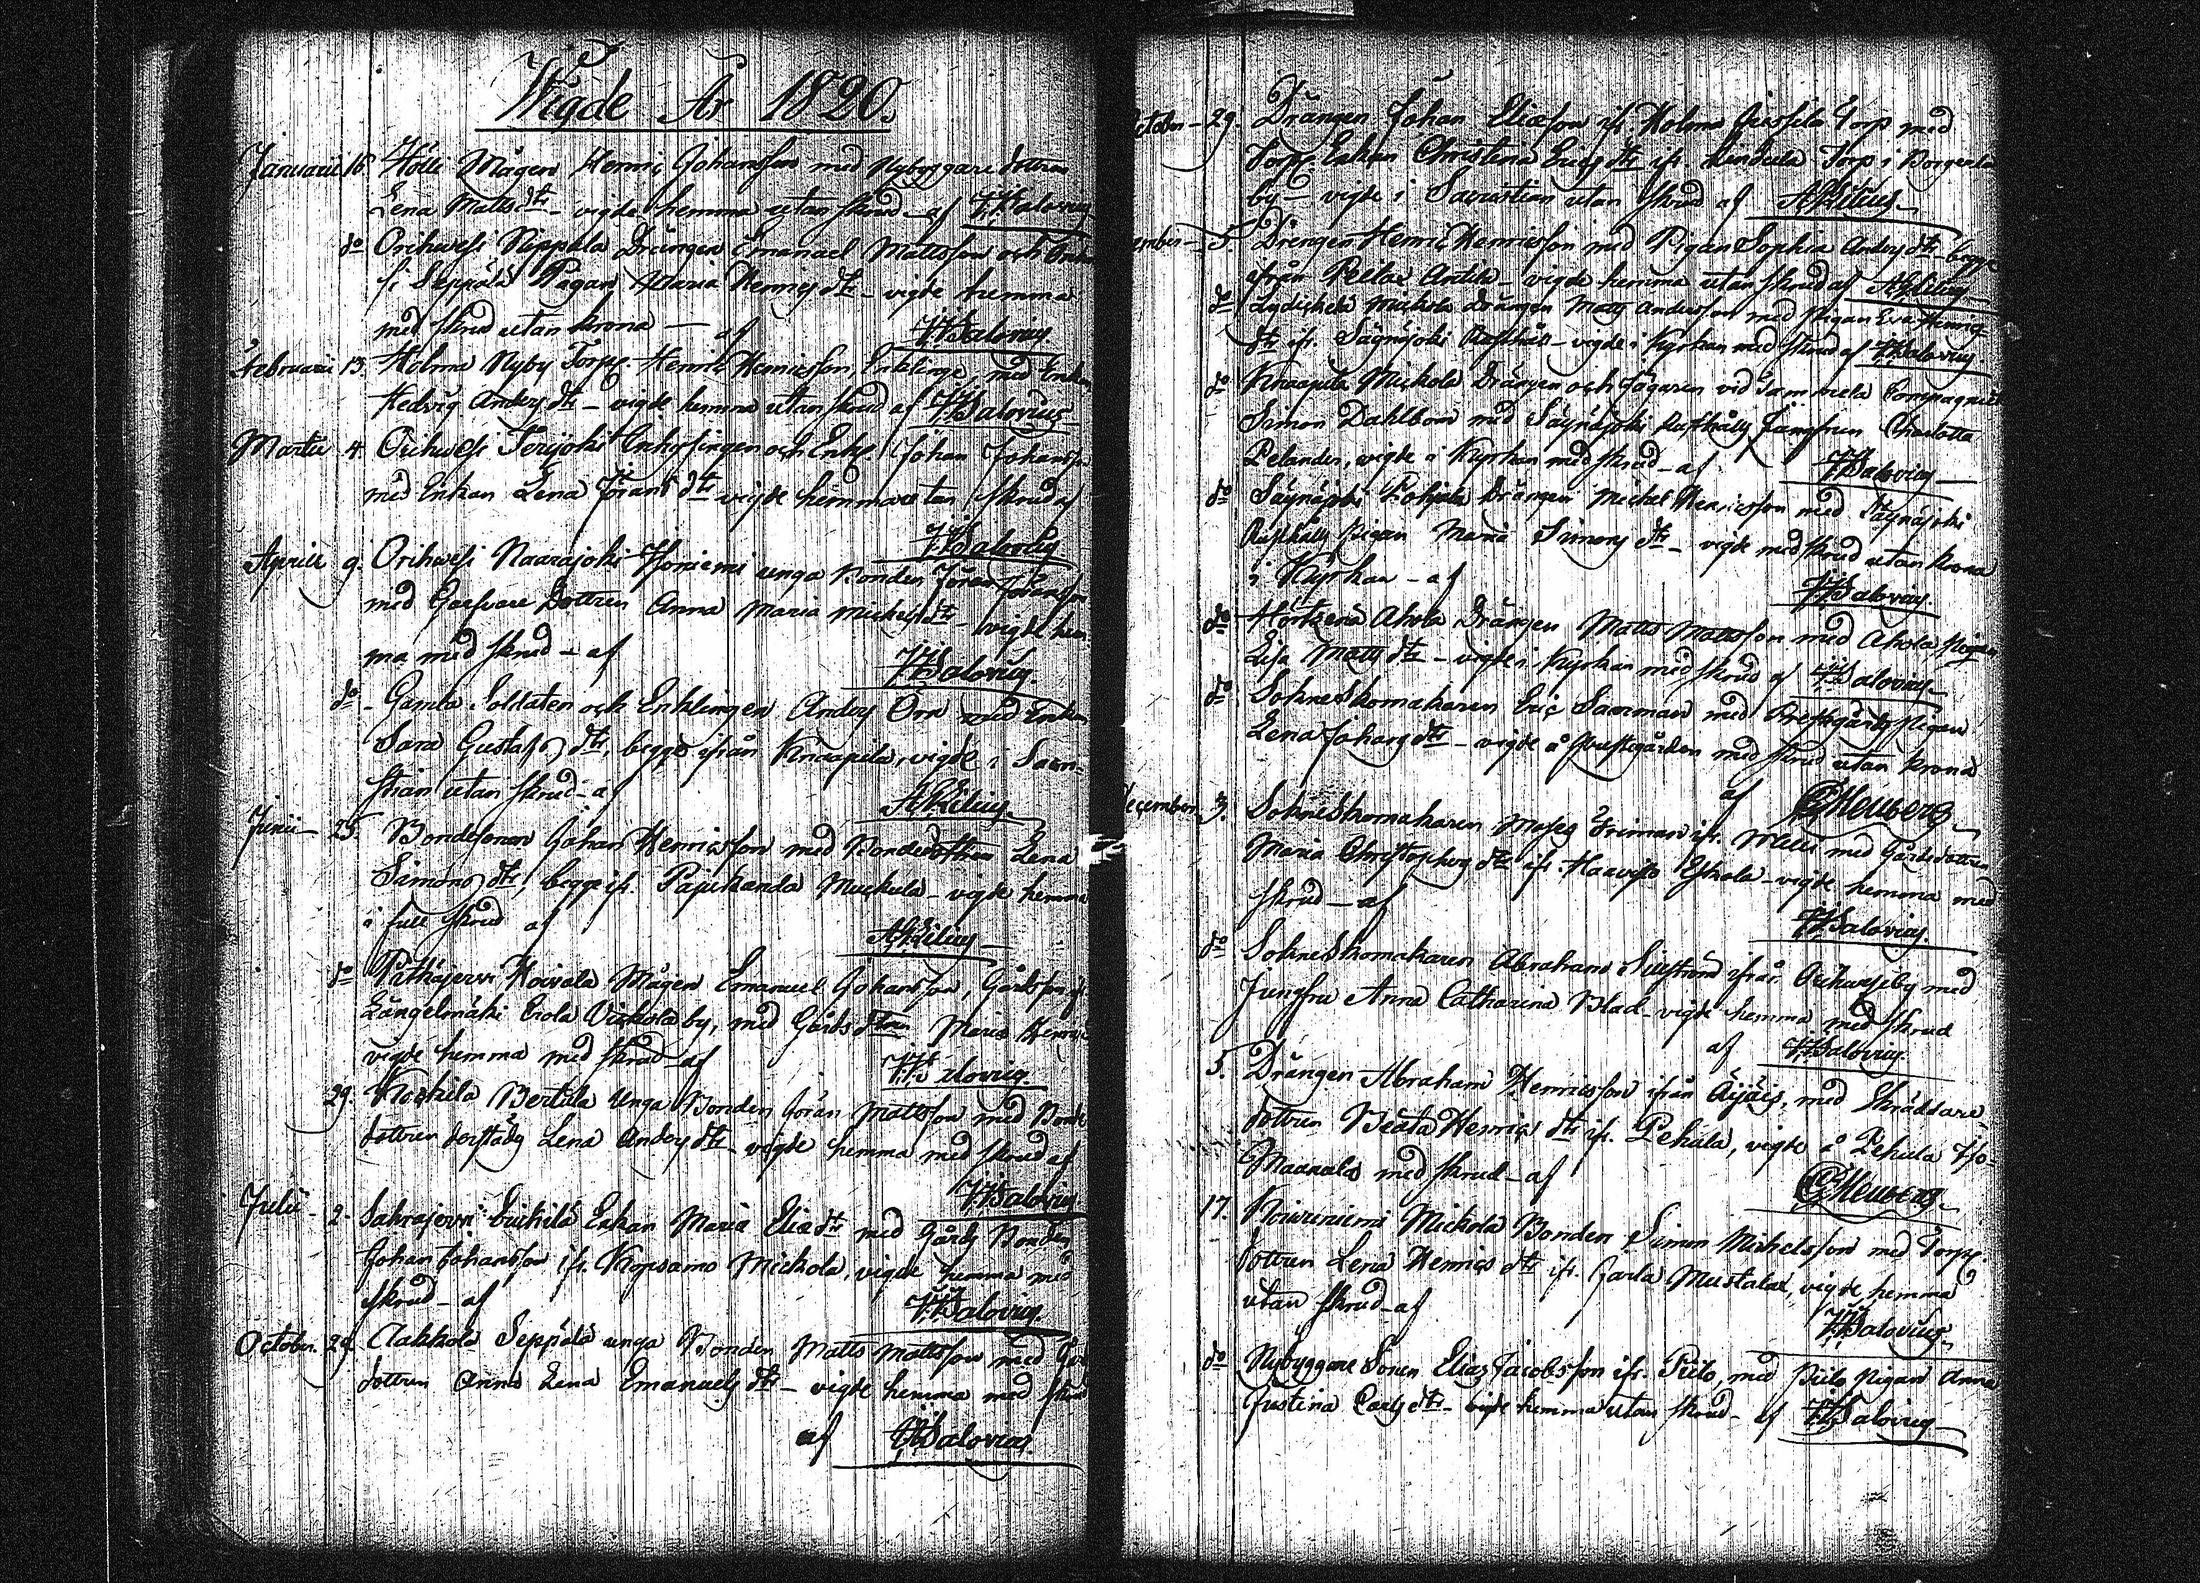 Wigde År 1820.
Januarii 16. Hölli Mågen Henric Johansson med Nybyggare dottren
Lena Matts dtr – vigde hemma utan skrud – af F.H. Salovius
do Orihvesi Seppälä Drängen Emanuel Mattsson och
Seppälä Pigan Maria Henrics dtr – vigde hemma
med skrud utan krona – af F.H. Salovius
Februarii 13. Holma Nyby Torp. Henric Henricsson, Enklinge, med Enkan
Hedvig Anders dtr – vigde hemma utan skrud af F.H. Salovius
Martii 4. Orihvesi Terijoki Enklingen och Johan Johansson
med Enkan Lena Jörans dtr vigde hemma utan skrud af
F.H. Salovius
Aprill 9. Orihvesi Naarajoki Honiemi unga Bonden Jöran Jöransson
med Dottren Anna Maria Michels dtr – vigde hem-
ma med skrud – af F.H. Salovius
do – Gamla Soldaten och Enklingen Anders Örn med Enkan
Sara Gustafs dtr, begge ifrån Knaapila, vigde i Sacri-
stian utan skrud – af A. Kilius
Junii – 25. Bondesonen Johan Henricsson med Bondedottren Lena
Simons dtr, begge ifr. Pajukanda Muckula – vigde hemma
i full skrud af A. Kilius
do Pitkäjervi Koivola Mågen Emanuel Johansson, Gårdsson ifr.
Längelmäki Erola by, med Gårds dottren Maria Henrics
vigde hemma med skrud – af F.H. Salovius
29. Koskila Bertula Unga Bonden Jöran Mattsson med Bonde
dottren derstädes Lena Anders dtr – vigde hemma med skrud af
F.H. Salovius
Julii – 2. Sahrajervi Erickilä Enkan Maria Elias dtr med Gårds Bonden
Johan Johansson ifr. Kopsamo Mickola, vigde hemma med
skrud – af F.H. Salovius
October. 29. Aakkola Seppälä unga Bonden Matts Mattsson med
dottren Anna Lena Emanuels dtr – vigde hemma med skrud
af F.H. Salovius
October – 29. Drängen Johan Eliasson ifr. Holma Torp med
Torp. Enkan Christina Erics dtr ifr. Torp i
by – vigde i Sacristian utan skrud af A. Kilius
5. Drängen Henric Henricsson med Pigan Sophia Anders dtr – begge
ifrån – vigde hemma utan skrud af A. Kilius
do Mickola Drängen Matts Andersson med Pigan Eva Henrics
dtr ifr. Säynäjoki Rusthåll – vigde i Kyrkan med skrud af F.H. Salovius
do Knaapila Mickola Drängen och Jägaren vid Tammela Compagniet
Simon Dahlbom med Säynäjoki Rusthålls Jungfrun Charlotta
Pelander, vigde i Kyrkan med skrud – af F.H. Salovius
do Säynäjoki Pohjala Drängen Michel Henricsson med Säynäjoki
Rusthålls Pigan Maria Simons dtr – vigde med skrud utan krona
i Kyrkan – af F.H. Salovius
do Ahola Drängen Matts Mattsson med Ahola Pigan
Lisa Matts dtr – vigde i Kyrkan med skrud af F.H. Salovius
do Sokneskomakaren Eric Saxman med Prestgårds Pigan
Lena Johans dtr – vigde å Prestegården med skrud utan krona
af G. Heuberg
December 3. Sokneskomakaren Moses Friman ifr. med Gårdsdottren
Maria Christophers dtr ifr. Haavisto Eskola – vigde hemma med
skrud – af F.H. Salovius
do Sokneskomakaren Abraham ifrån Orihvesi by med
Jungfru Anna Catharina Blad – vigde hemma med skrud
af F.H. Salovius
5. Drängen Abraham Henricsson ifrån, med Skräddare
dottren Beata Henrics dtr ifr. Pehula, vigde å Pehula
Maanala med skrud – af G. Heuberg
17. Koivuniemi Mickola Bonden Simon Michelsson med Torp.
dottren Lena Henrics dtr ifr. Jarla Mustala, vigde hemma
utan skrud – af F.H. Salovius
do Nybyggare Sonen Elias Jacobsson ifr. Piilo, med Piilo Pigan Anna
Justina Carls dtr – vigde hemma utan skrud – af F.H. Salovius